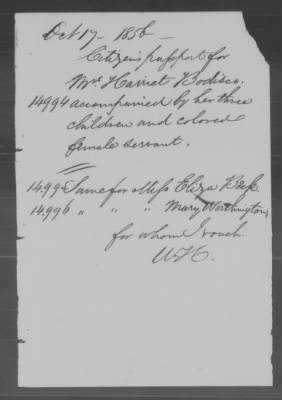 Oct 17 - 1856 -
Citizen's passport for
Mrs Harriet Bodisco.
14994 accompanied by her three
children and colored
female servant.
14995 Same for Miss Eliza
14996 " " " Mary Worthington,
for whom I vouch.
W.H.